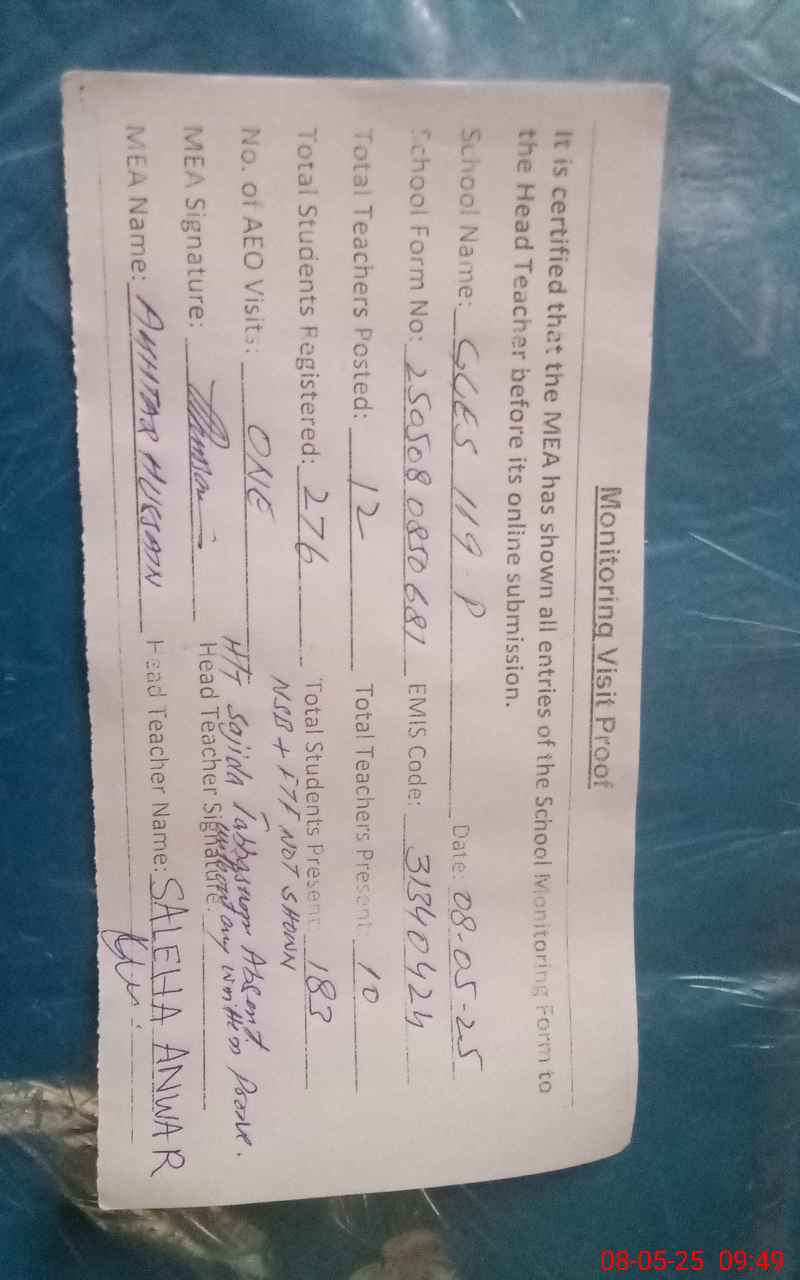 Monitoring Visit Proof
It is certified that the MEA has shown all entries of the School Monitoring Form to
the Head Teacher before its online submission.
School Name: GGES 119-P Date: 08-05-25
School Form No: 250508 0850681 EMIS Code: 31340424
Total Teachers Posted: 12 Total Teachers Present: 10
Total Students Registered: 276 Total Students Present: 183
NSB + FTF NOT SHOWN
No. of AEO Visits: ONE
HT Sajida Tabbasum Absent
without any written Prove.
MEA Signature: Head Teacher Signature:
MEA Name: AKHTAR HUSSAIN Head Teacher Name: SALEHA ANWAR
08-05-25 09:49